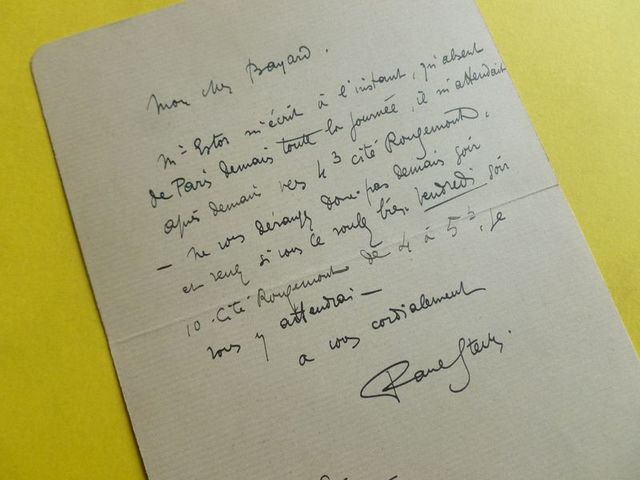 Mon cher Bayard.
Mr Estor m'écrit à l'instant, qu'absent
de Paris demain toute la journée, il m'attendrait
après demain vers 4 h cité Rougemont.
— Ne vous dérangez donc pas demain soir
et venez si vous le voulez bien. Vendredi soir
10. Cité Rougemont de 4 à 5 h. Je
vous y attendrai —
a vous cordialement
Paul Steck.